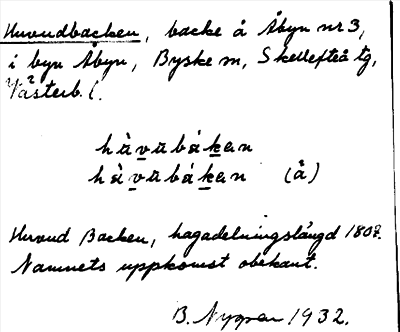 Huvudbacken, backe å Åbyn nr 3,
i byn Åbyn, Byske sn, Skellefteå tg,
Västerb. l.
hàvabákan
hàvabákan (å)
Huvud Backen, hagadelningslängd 1807.
Namnets uppkomst obekant.
B. Nygren 1932.